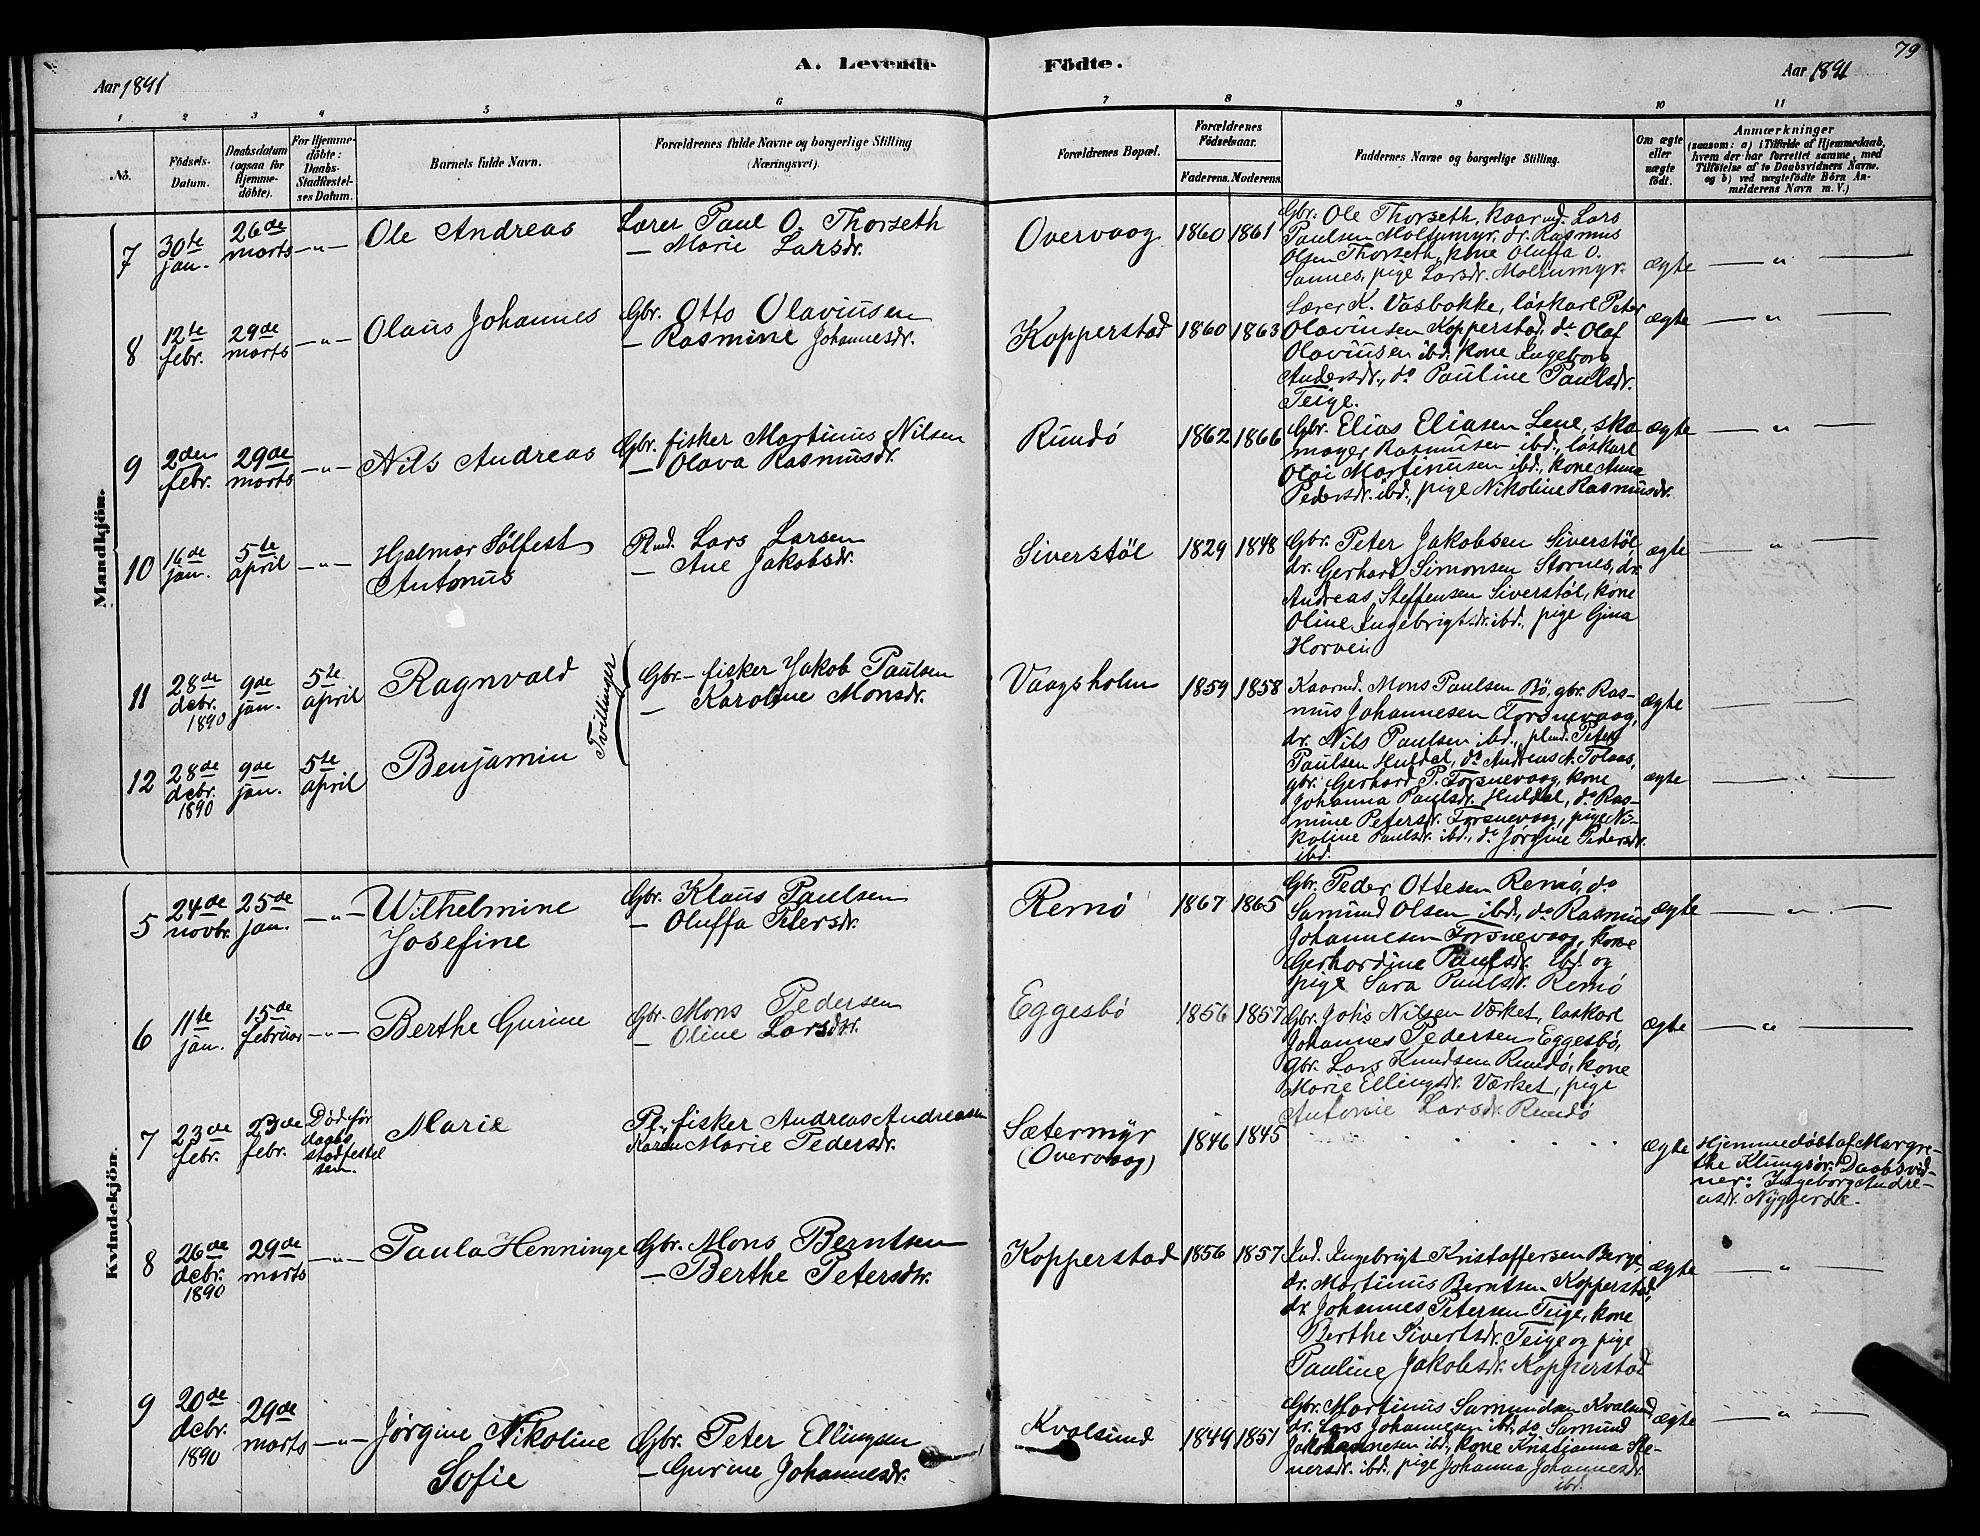 79
A. Levende Födte.
Aar 1891
Aar 1891
1 2 3 4 5 6 7 8 9 10 11
No.
Födsels-Datum.
Daabsdatum (ogsaa for Hjemmedöbte).
For Hjemmedöbte: Daabs-Stadfæstelses Datum.
Barnets fulde Navn.
Forældrenes fulde Navne og borgerlige Stilling (Næringsvei).
Forældrenes Bopæl.
Forældrenes Födselsaar.
Faderens. Moderens.
Faddernes Navne og borgerlige Stilling.
Om ægte eller uægte födt.
Anmærkninger
(saasom: a) i Tilfælde af Hjemmedaab, hvem der har forrettet samme, med Tilföielse af to Daabsvidners Navne, og b) ved uægtefödte Börn Anmelderens Navn m. V.)
Mandkjön.
7 30te jan. 26de marts —"— Ole Andreas
Lærer Paul O. Thorseth
— Marie Larsdr.
Overvaag 1860 1861
Gbr. Ole Thorseth, kaarmd. Lars
Paulsen Moltumyr, dr. Rasmus
Olsen Thorseth, kone Oluffa O.
Sannes, pige Larsdr. Moltumyr.
ægte —"—
8 12te febr. 29de marts —"— Olaus Johannes
Gbr. Otto Olaviusen
— Rasmine Johannesdr.
Kopperstad 1860 1863
Lærer K. Vasbakke, löskarl Peter
Olaviusen Kopperstad, do Olaf
Olaviusen ibd., kone Ingeborg
Andersdr., do Pauline Paulsdr.
Teige.
ægte —"—
9 2den febr. 29de marts —"— Nils Andreas
Gbr. fisker Martinus Nilsen
— Olava Rasmusdr.
Rundö 1862 1866
Gbr. Elias Eliasen Lene, sko
mager Rasmusen ibd., löskarl
Olai Martinusen ibd., kone Anna
Pedersdr. ibd., pige Nikoline Rasmusdr.
ægte —"—
10 16de jan. 5te april —"— Hjalmar Sölfest
Antonus
Plmd. Lars Larsen
— Ane Jakobsdr.
Siverstöl 1829 1848
Gbr. Peter Jakobsen Siverstöl
dr. Gerhard Simonsen Stornes, dr.
Andreas Steffensen Siverstöl, kone
Oline Ingebrigtsdr. ibd., pige Gina
Horvei
ægte —"—
11 28de debr. 1890 9de jan. 5te april Ragnvald
Tvillinger
Gbr. — fisker Jakob Paulsen
— Karoline Monsdr.
Vaagsholm 1859 1858
Kaarmd. Mons Paulsen Bö, gbr. Ras-
mus Johannesen Torsnevaag,
dr. Nils Paulsen ibd., plmd. Peter
Paulsen Huldal, do Andreas A. Tolaas,
gbr. Gerhard P. Torsnevaag, kone
Johanna Paulsdr. Huldal, do Ras-
mine Petersdr. Torsnevaag, pige Ni-
koline Paulsdr. ibd., do Jörgine Pedersdr.
ibd.
ægte
12 28de debr. 1890 9de jan. 5te april Benjamin
ægte —"—
Kvindekjön.
5 24de novbr. 25de jan. —"— Wilhelmine
Josefine
Gbr. Klaus Paulsen
— Oluffa Petersdr.
Remö 1867 1865
Gbr. Peder Ottesen Remö, do
Samund Olsen ibd., do Rasmus
Johannesen Torsnevaag, kone
Gerhardine Paulsdr. ibd. og
pige Sara Paulsdr. Remö
ægte —"—
6 11te jan. 15de februar —"— Berthe Gurine
Gbr. Mons Pedersen
— Oline Larsdr.
Eggesbö 1856 1857
Gbr. Johs Nilsen Værket, löskarl
Johannes Pedersen Eggesbö,
gbr. Lars Knudsen Rundö, kone
Marie Ellingsdr. Værket, pige
Antonie Larsdr. Rundö
ægte —"—
7 23de febr. 23de febr. Död för
daabs
stadfestel
sen. Marie
Pl. fisker Andreas Andreasen
Karen Marie Pedersdr.
Sætermyr
(Overvaag)
1846 1845
ægte
Hjemmedöbt af Margre-
the Klungsör. Daabsvid-
ner: Ingeborg Andre-
asdr. Nyggerde.
8 26de debr. 1890 29de marts —"— Paula Henninge
Gbr. Mons Berntsen
— Berthe Petersdr.
Kopperstad 1856 1857
Ind. Ingebrigt Kristoffersen Berge,
dr. Martinus Berntsen Kopperstad,
dr. Johannes Petersen Teige, kone
Berthe Sivertsdr. Teige og pige
Pauline Jakobsdr. Kopperstad
ægte —"—
9 20de debr. 1890 29de marts —"— Jörgine Nikoline
Sofie
Gbr. Peter Ellingsen
— Gurine Johannesdr.
Kvalsund 1849 1851
Gbr. Martinus Samundsen Kvalsund
dr. Lars Johannesen ibd., do Samund
Johannesen ibd., kone Kristianna Ste-
nersdr. ibd., pige Johanna Johannesdr.
ibd.
ægte —"—